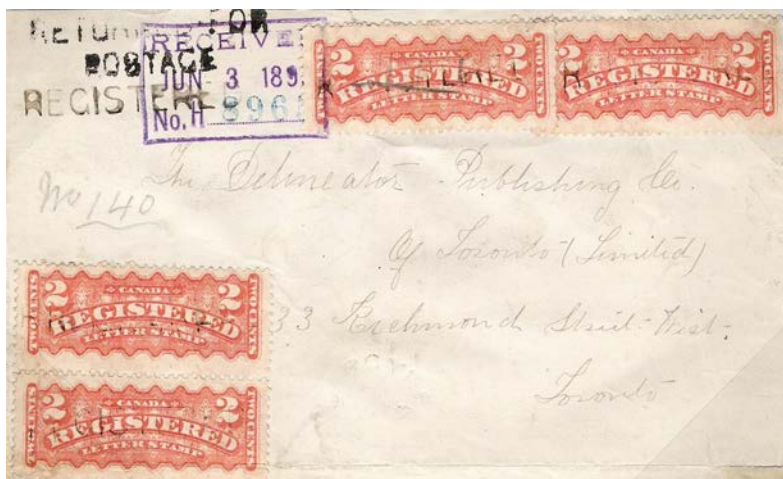 RETURNED FOR
POSTAGE
REGISTERED
RECEIVE
JUN 3 189
No. H 896
CANADA
2 REGISTERED 2
LETTER STAMP
TWO CENTS
TWO CENTS
CANADA
2 REGISTERED 2
LETTER STAMP
TWO CENTS
The Delineator Publishing Co.
No 140
Of Toronto (Limited)
33 Richmond Street West.
Toronto
TWO CENTS
CANADA
2 REGISTERED 2
LETTER STAMP
TWO CENTS
TWO CENTS
CANADA
2 REGISTERED 2
LETTER STAMP
TWO CENTS